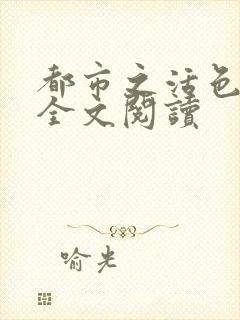 都市之活色
全文閱讀
喻光